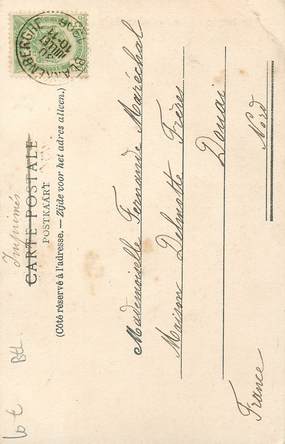 BLANKENBERGHE
CARTE POSTALE
Imprimés
POSTKAART
(Côté réservé à l'adresse. — Zijde voor het adres alleen.)
Mademoiselle Fernande Maréchal
Maison Delmotte Frères
Douai
Nord
France